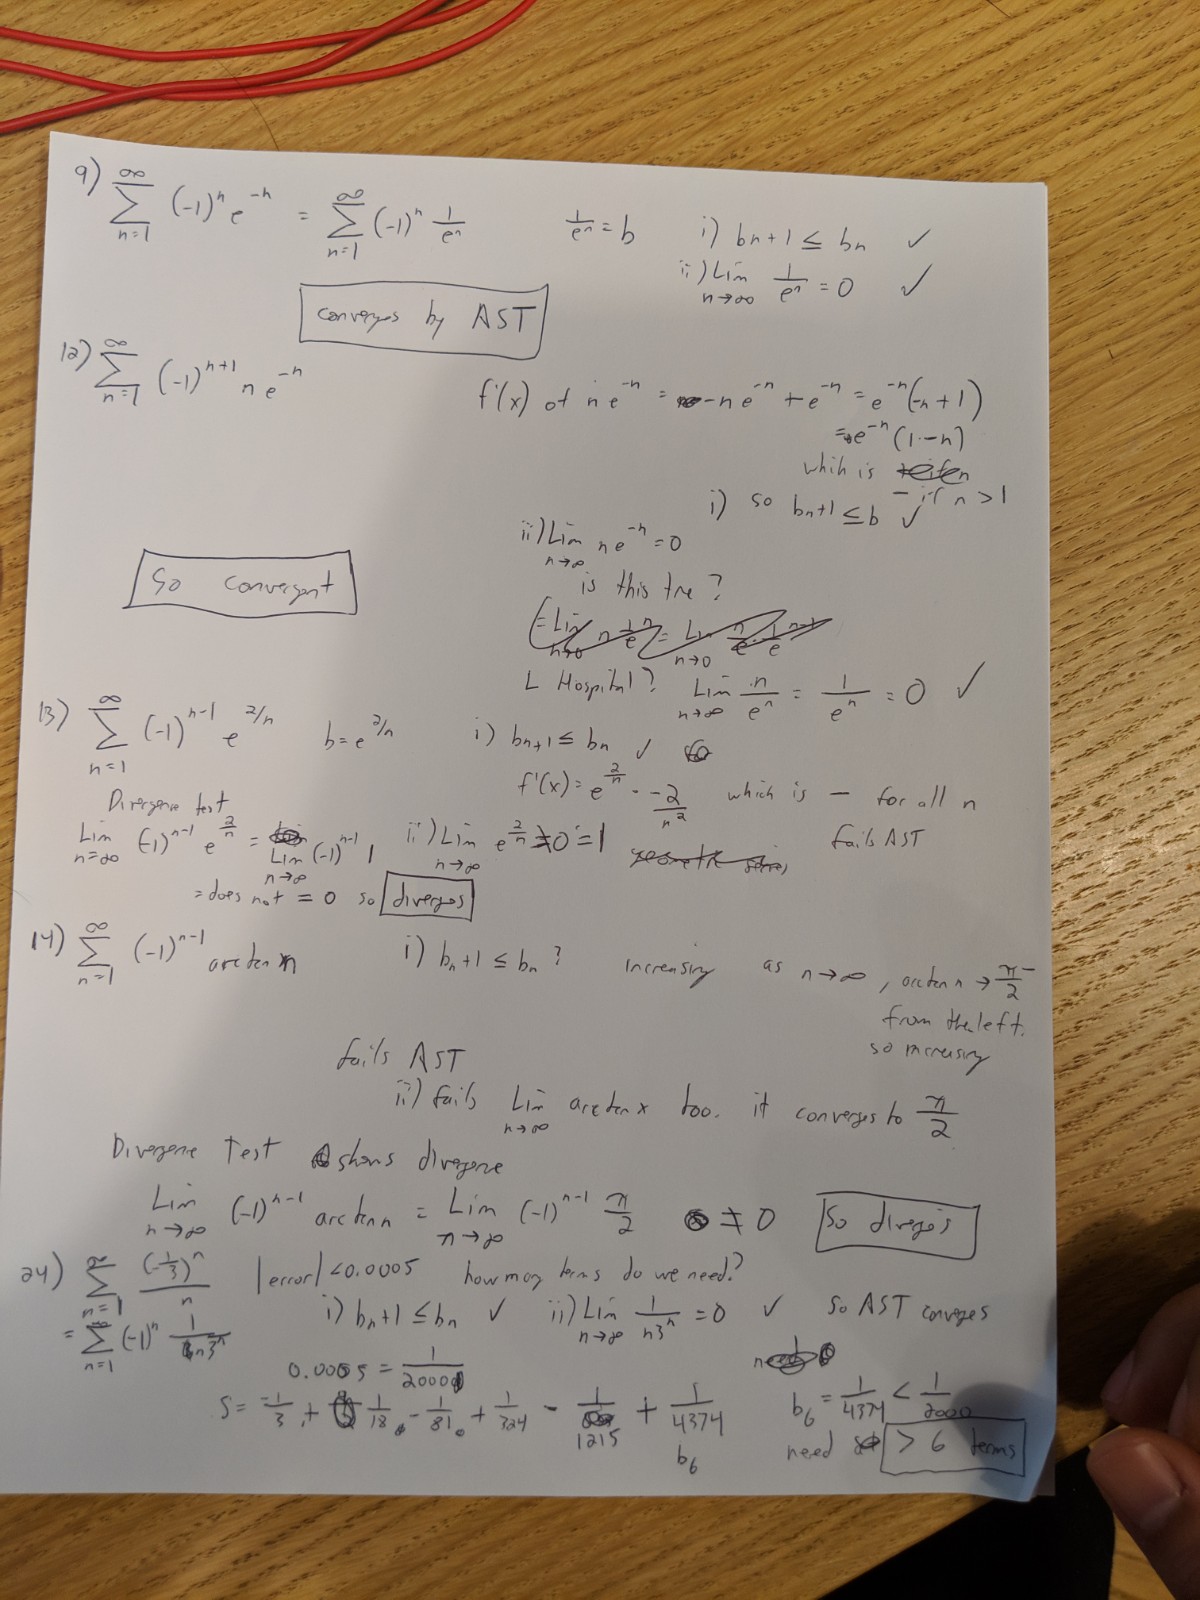 9) ∞∑n=1 (-1)^n e^-n = ∞∑n=1 (-1)^n 1/e^n   1/e^n = b   i) bn+1 ≤ bn ✓
ii) Lim n→∞ 1/e^n = 0 ✓
converges by AST
12) ∞∑n=1 (-1)^n+1 n e^-n
f'(x) of n e^-n = -n e^-n + e^-n = e^-n(-n+1)
= e^-n (1-n)
whih is
- if n > 1
i) so bn+1 ≤ b ✓
ii) Lim n→∞ n e^-n = 0
is this tre?
So convergent
L Hospital? Lim n→∞ n/e^n = 1/e^n = 0 ✓
13) ∞∑n=1 (-1)^n-1 e^2/n   b = e^2/n   i) bn+1 ≤ bn ✓
f'(x) = e^2/n · -2/n^2 which is - for all n
Divergene test
Lim n=∞ (-1)^n-1 e^2/n = Lim n→∞ (-1)^n-1 1   ii) Lim n→∞ e^2/n ≠ 0 = 1   fails AST
= does not = 0 so diverges
14) ∞∑n=1 (-1)^n-1 arctan n   i) bn+1 ≤ bn?   increasing as n→∞, arctan n → π/2^-
from the left.
so increasing
fails AST
ii) fails Lim n→∞ arctan x too. it converges to π/2
Divergene Test shows divergene
Lim n→∞ (-1)^n-1 arctan n = Lim n→∞ (-1)^n-1 π/2 ≠ 0   So diverges
24) ∞∑n=1 (-1/3)^n/n   |error| < 0.0005   how many terms do we need?
= ∞∑n=1 (-1)^n 1/n3^n   i) bn+1 ≤ bn ✓   ii) Lim n→∞ 1/n3^n = 0 ✓   So AST converges
0.0005 = 1/2000
S = -1/3 + 1/18 - 1/81 + 1/324 - 1/1215 + 1/4374   b6 = 1/4374 < 1/2000
b6
need > 6 terms